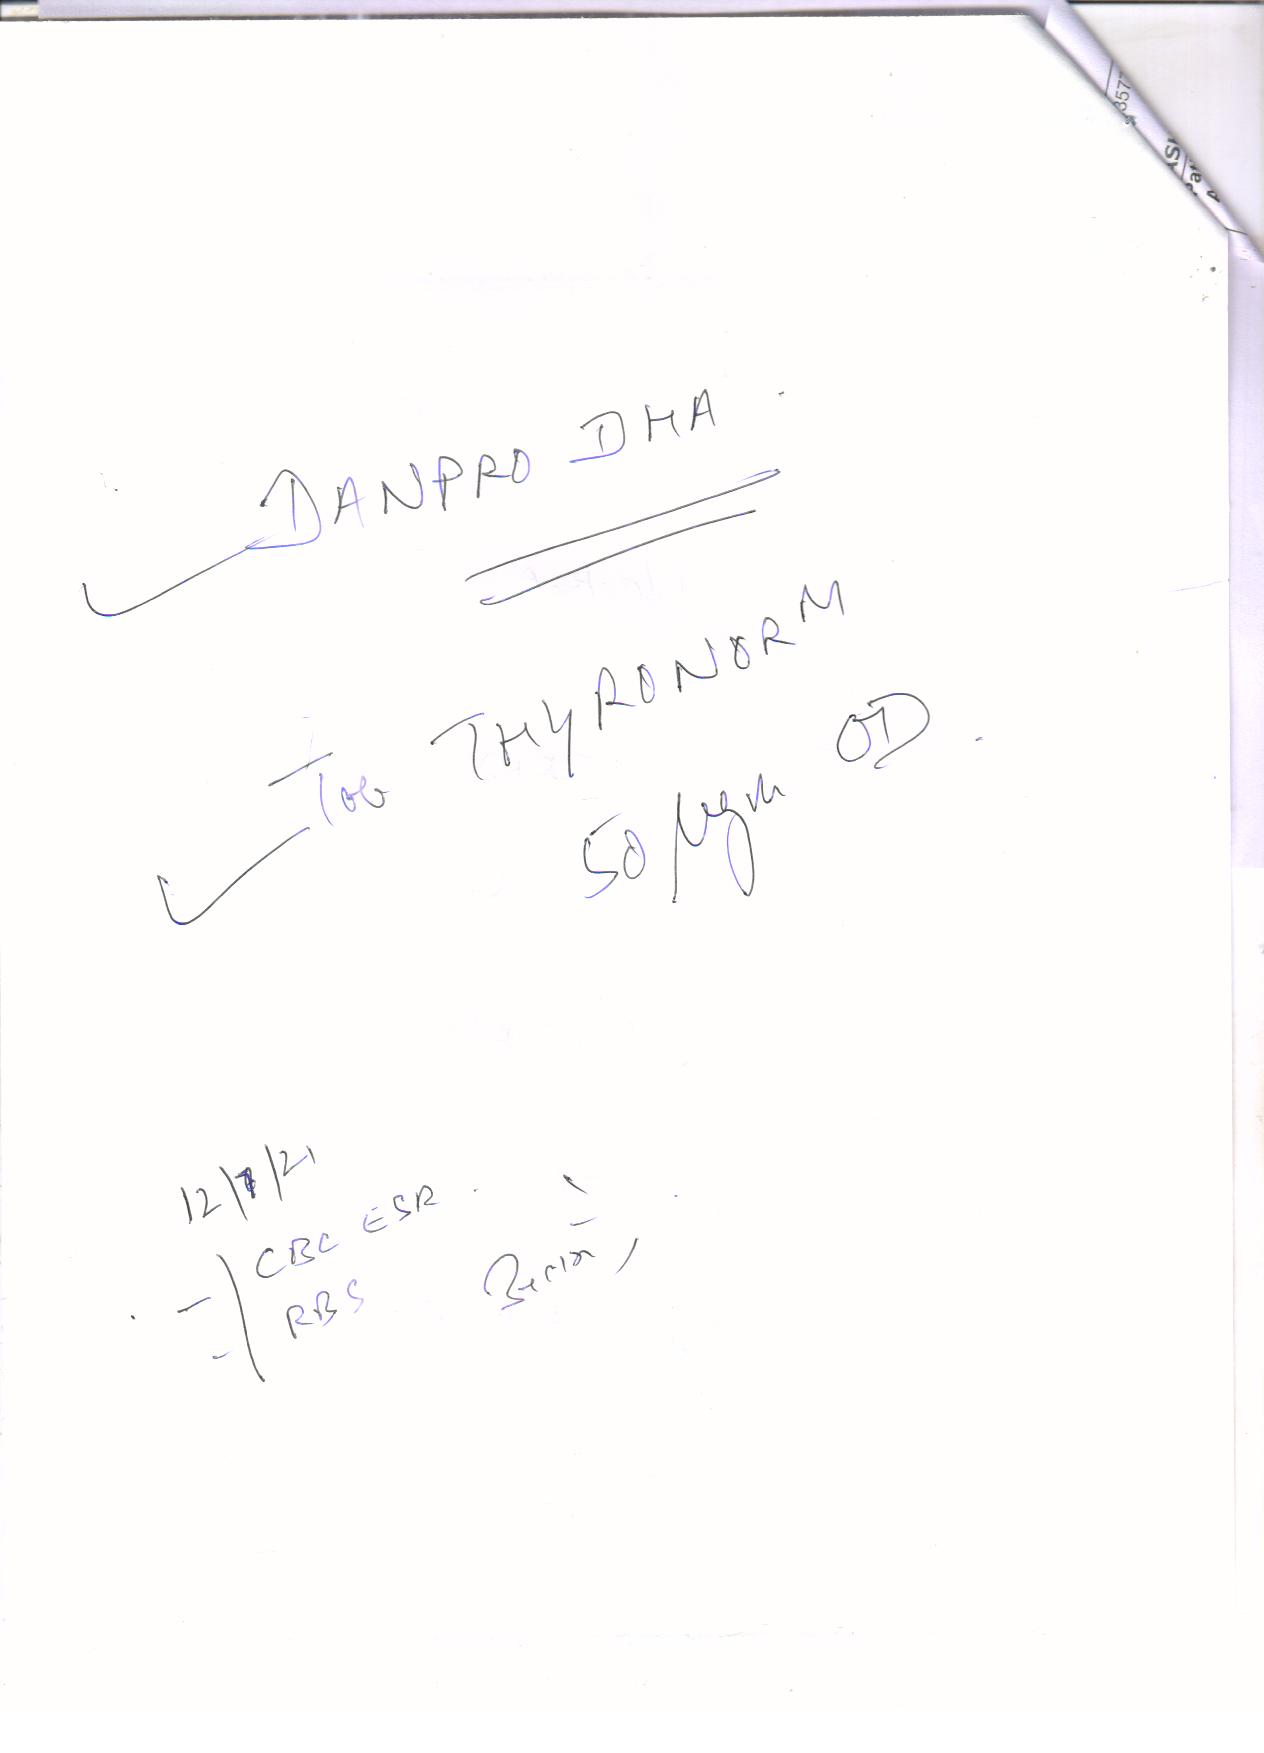 DANPRO DHA
Tab THYRONORM
50 μgm OD
12/7/21
CBC ESR
RBS